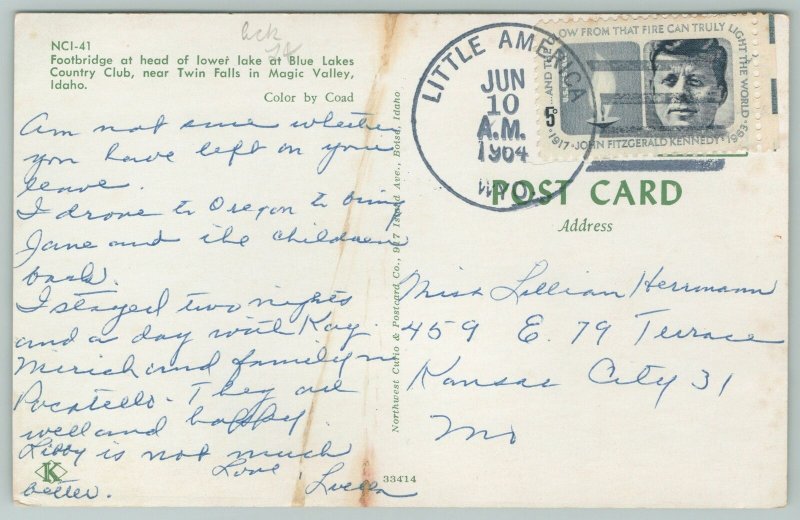 NCI-41
Footbridge at head of lower lake at Blue Lakes
Country Club, near Twin Falls in Magic Valley,
Idaho.
Color by Coad
Am not sure whether
you have left on your
leave.
I drove to Oregon to bring
Jane and the children
back.
I stayed two nights
and a day with Kay
and family in
Pocatello. They are
well and happy.
Libby is not much
better.
Love,
Northwest Curio & Postcard Co., 917 Island Ave., Boise, Idaho
33414
K
LITTLE AMERICA
JUN
10
A.M.
1964
WYO.
...AND THE GLOW FROM THAT FIRE CAN TRULY LIGHT THE WORLD
5¢
1917·JOHN FITZGERALD KENNEDY·1963
POST CARD
Address
Miss Lillian Herrmann
459 E. 79 Terrace
Kansas City 31
Mo